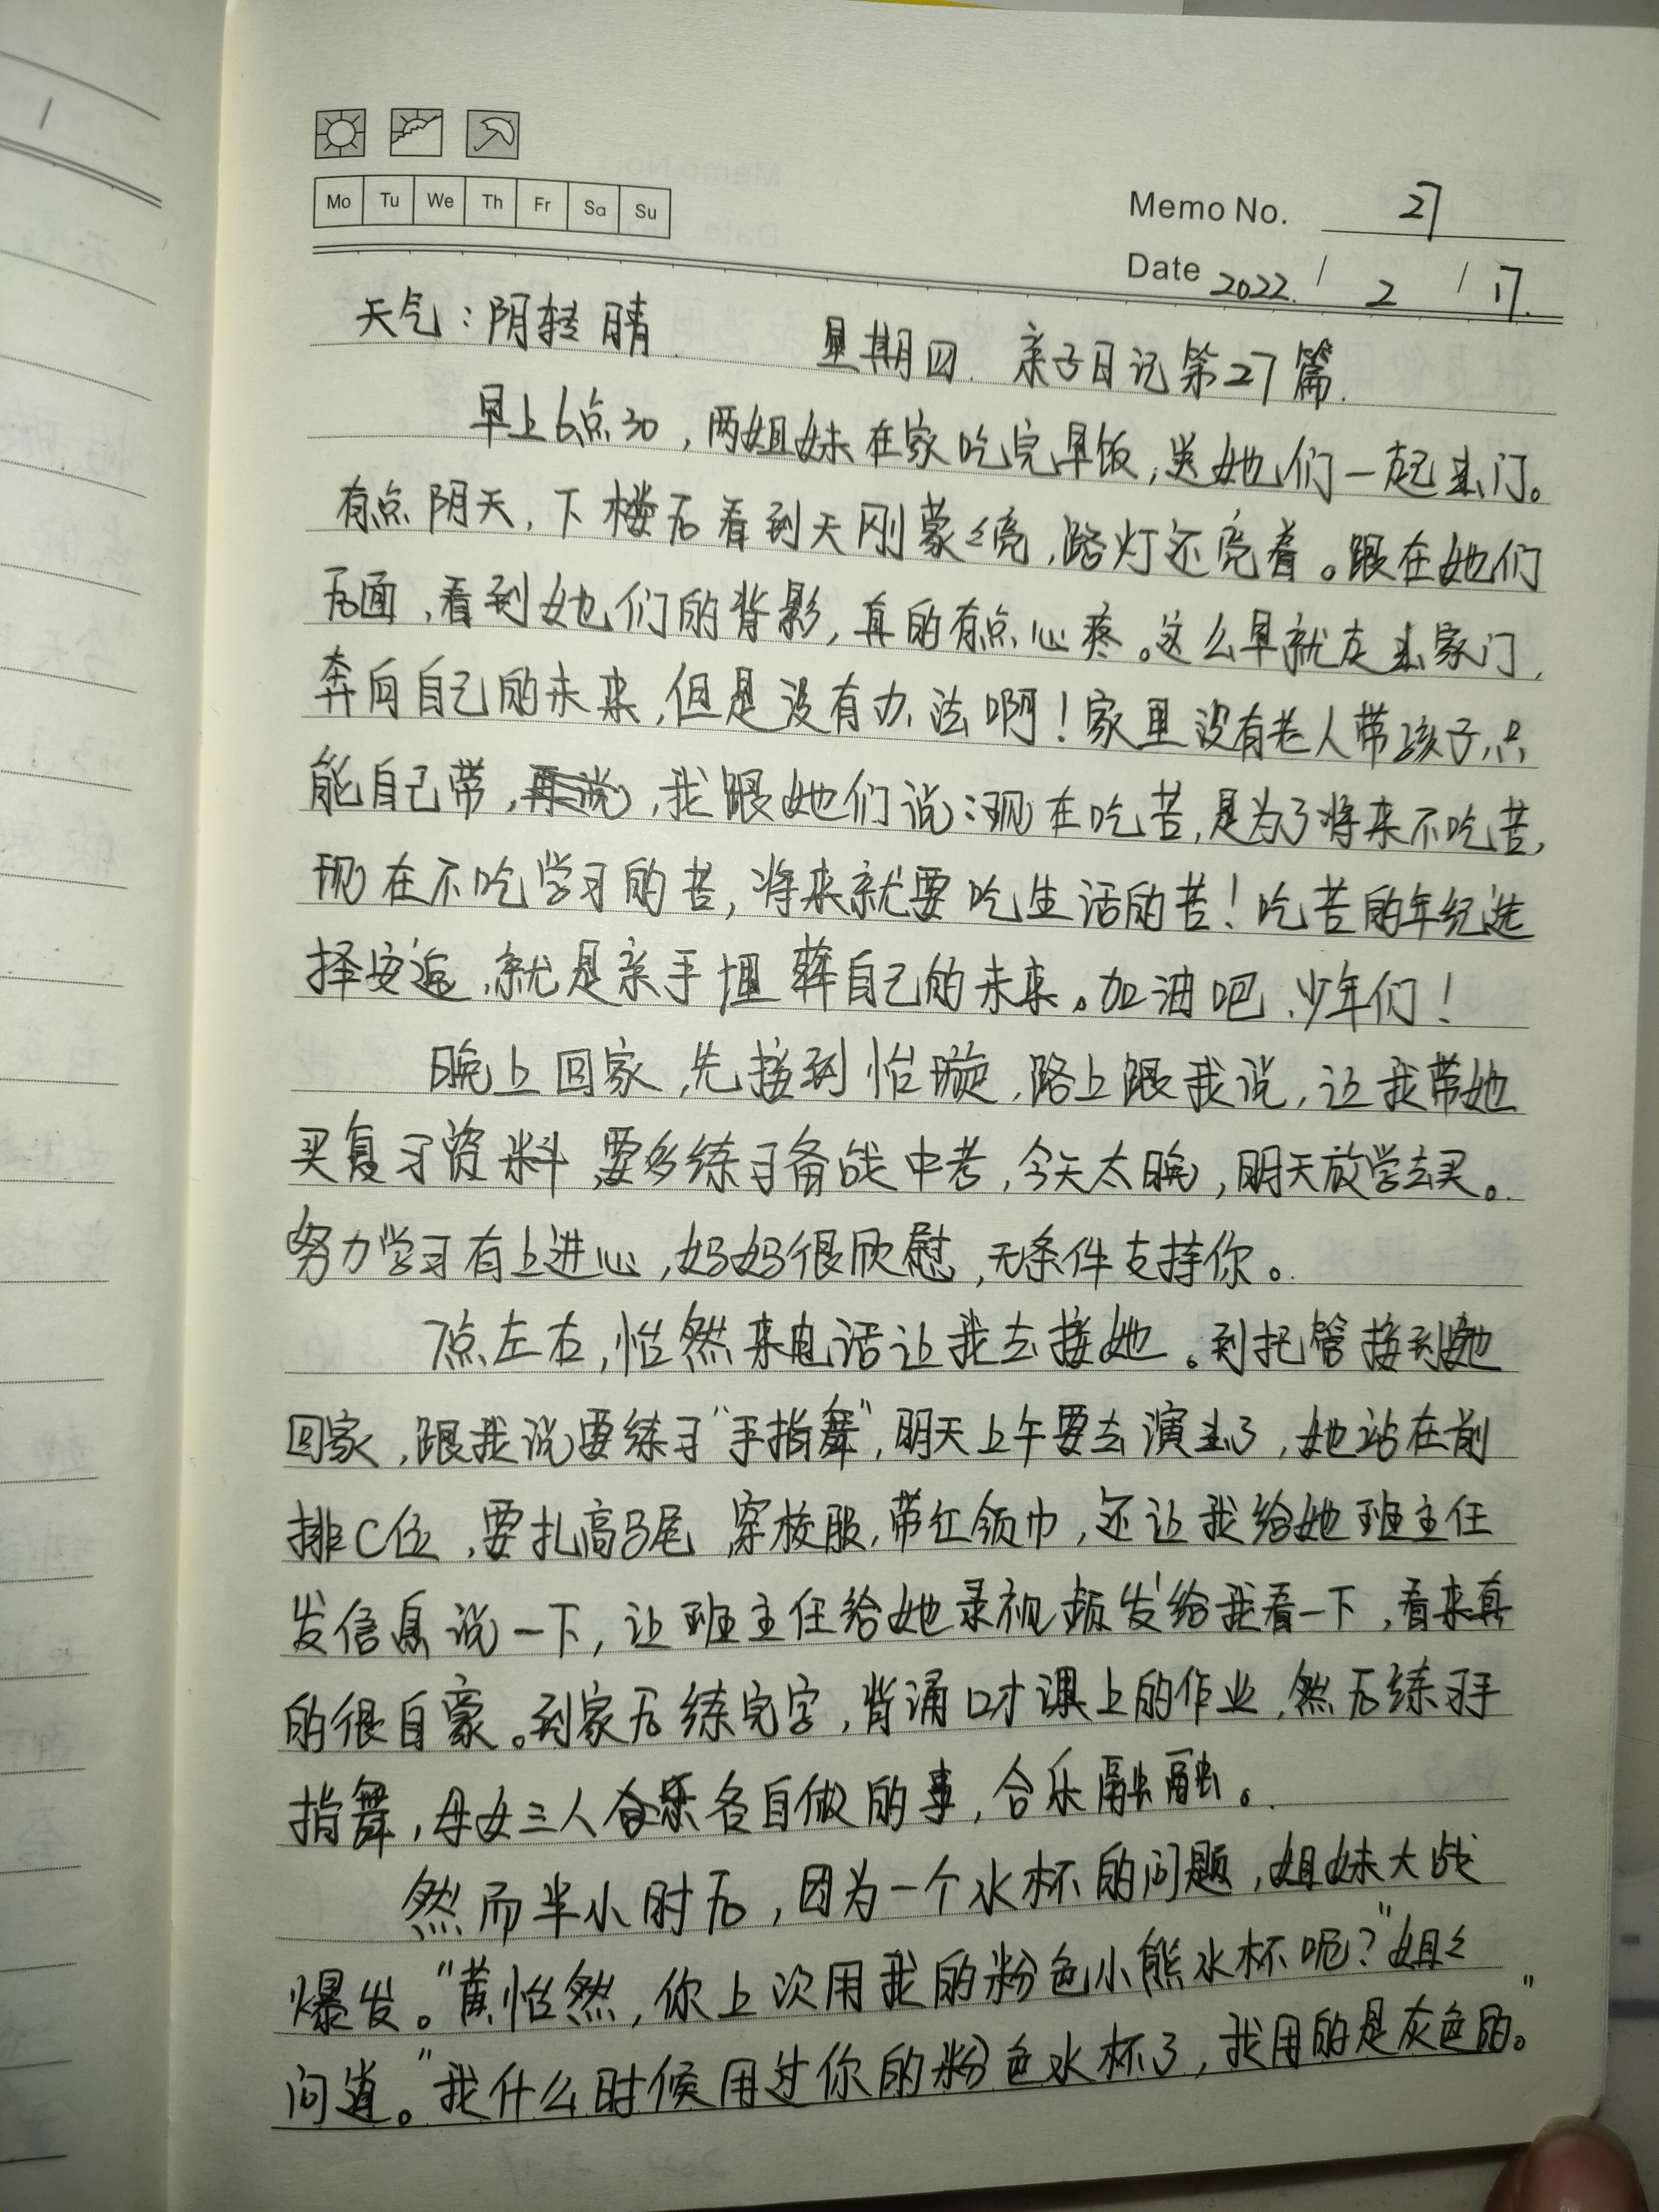 Mo Tu We Th Fr Sa Su
Memo No. 27
Date 2022. / 2 / 17.
天气：阴转晴. 星期四. 亲子日记第27篇.
早上6点30，两姐妹在家吃完早饭，送她们一起出门。
有点阴天，下楼后看到天刚蒙々亮，路灯还亮着。跟在她们
后面，看到她们的背影，真的有点心疼。这么早就走出家门，
奔向自己的未来，但是没有办法啊！家里没有老人带孩子，只
能自己带，再说，我跟她们说：现在吃苦，是为了将来不吃苦，
现在不吃学习的苦，将来就要吃生活的苦！吃苦的年纪选
择安逸，就是亲手埋葬自己的未来。加油吧，少年们！
晚上回家，先接到怡璇，路上跟我说，让我带她
买复习资料，要多练习备战中考，今天太晚，明天放学去买。
努力学习有上进心，妈妈很欣慰，无条件支持你。
7点左右，怡然来电话让我去接她。到托管接到她
回家，跟我说要练习“手指舞”，明天上午要去演出了，她站在前
排C位，要扎高马尾，穿校服，带红领巾，还让我给她班主任
发信息说一下，让班主任给她录视频发给我看一下，看来真
的很自豪。到家后练完字，背诵口才课上的作业，然后练习手
指舞，母女三人合乐各自做的事，合乐融融。
然而半小时后，因为一个水杯的问题，姐妹大战
爆发。“黄怡然，你上次用我的粉色小熊水杯呢？”姐々
问道。“我什么时候用过你的粉色水杯了，我用的是灰色的。”